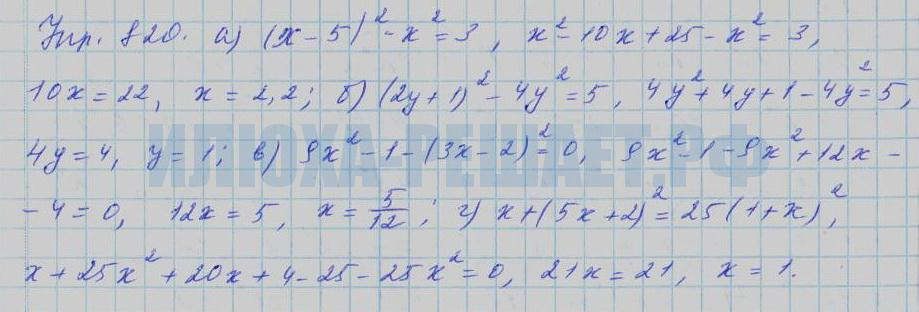 Упр. 820. а) (x - 5)² - x² = 3, x² - 10x + 25 - x² = 3,
10x = 22, x = 2,2; б) (2y + 1)² - 4y² = 5, 4y² + 4y + 1 - 4y² = 5,
4y = 4, y = 1; в) 9x² - 1 - (3x - 2)² = 0, 9x² - 1 - 9x² + 12x -
ИЛЮХА-РЕШАЕТ.РФ
- 4 = 0, 12x = 5, x = 5/12; г) x + (5x + 2)² = 25(1 + x)²,
x + 25x² + 20x + 4 - 25 - 25x² = 0, 21x = 21, x = 1.